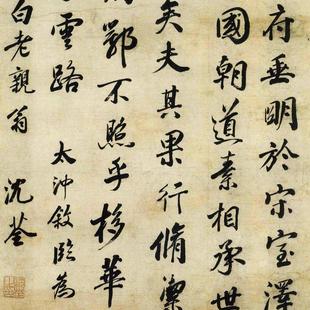 府垂明於宋室澤
國朝道素相承世
矣夫其果行脩潔
鄂不照乎栘華
雲路 太沖敘臨為
白老親翁 沈荃